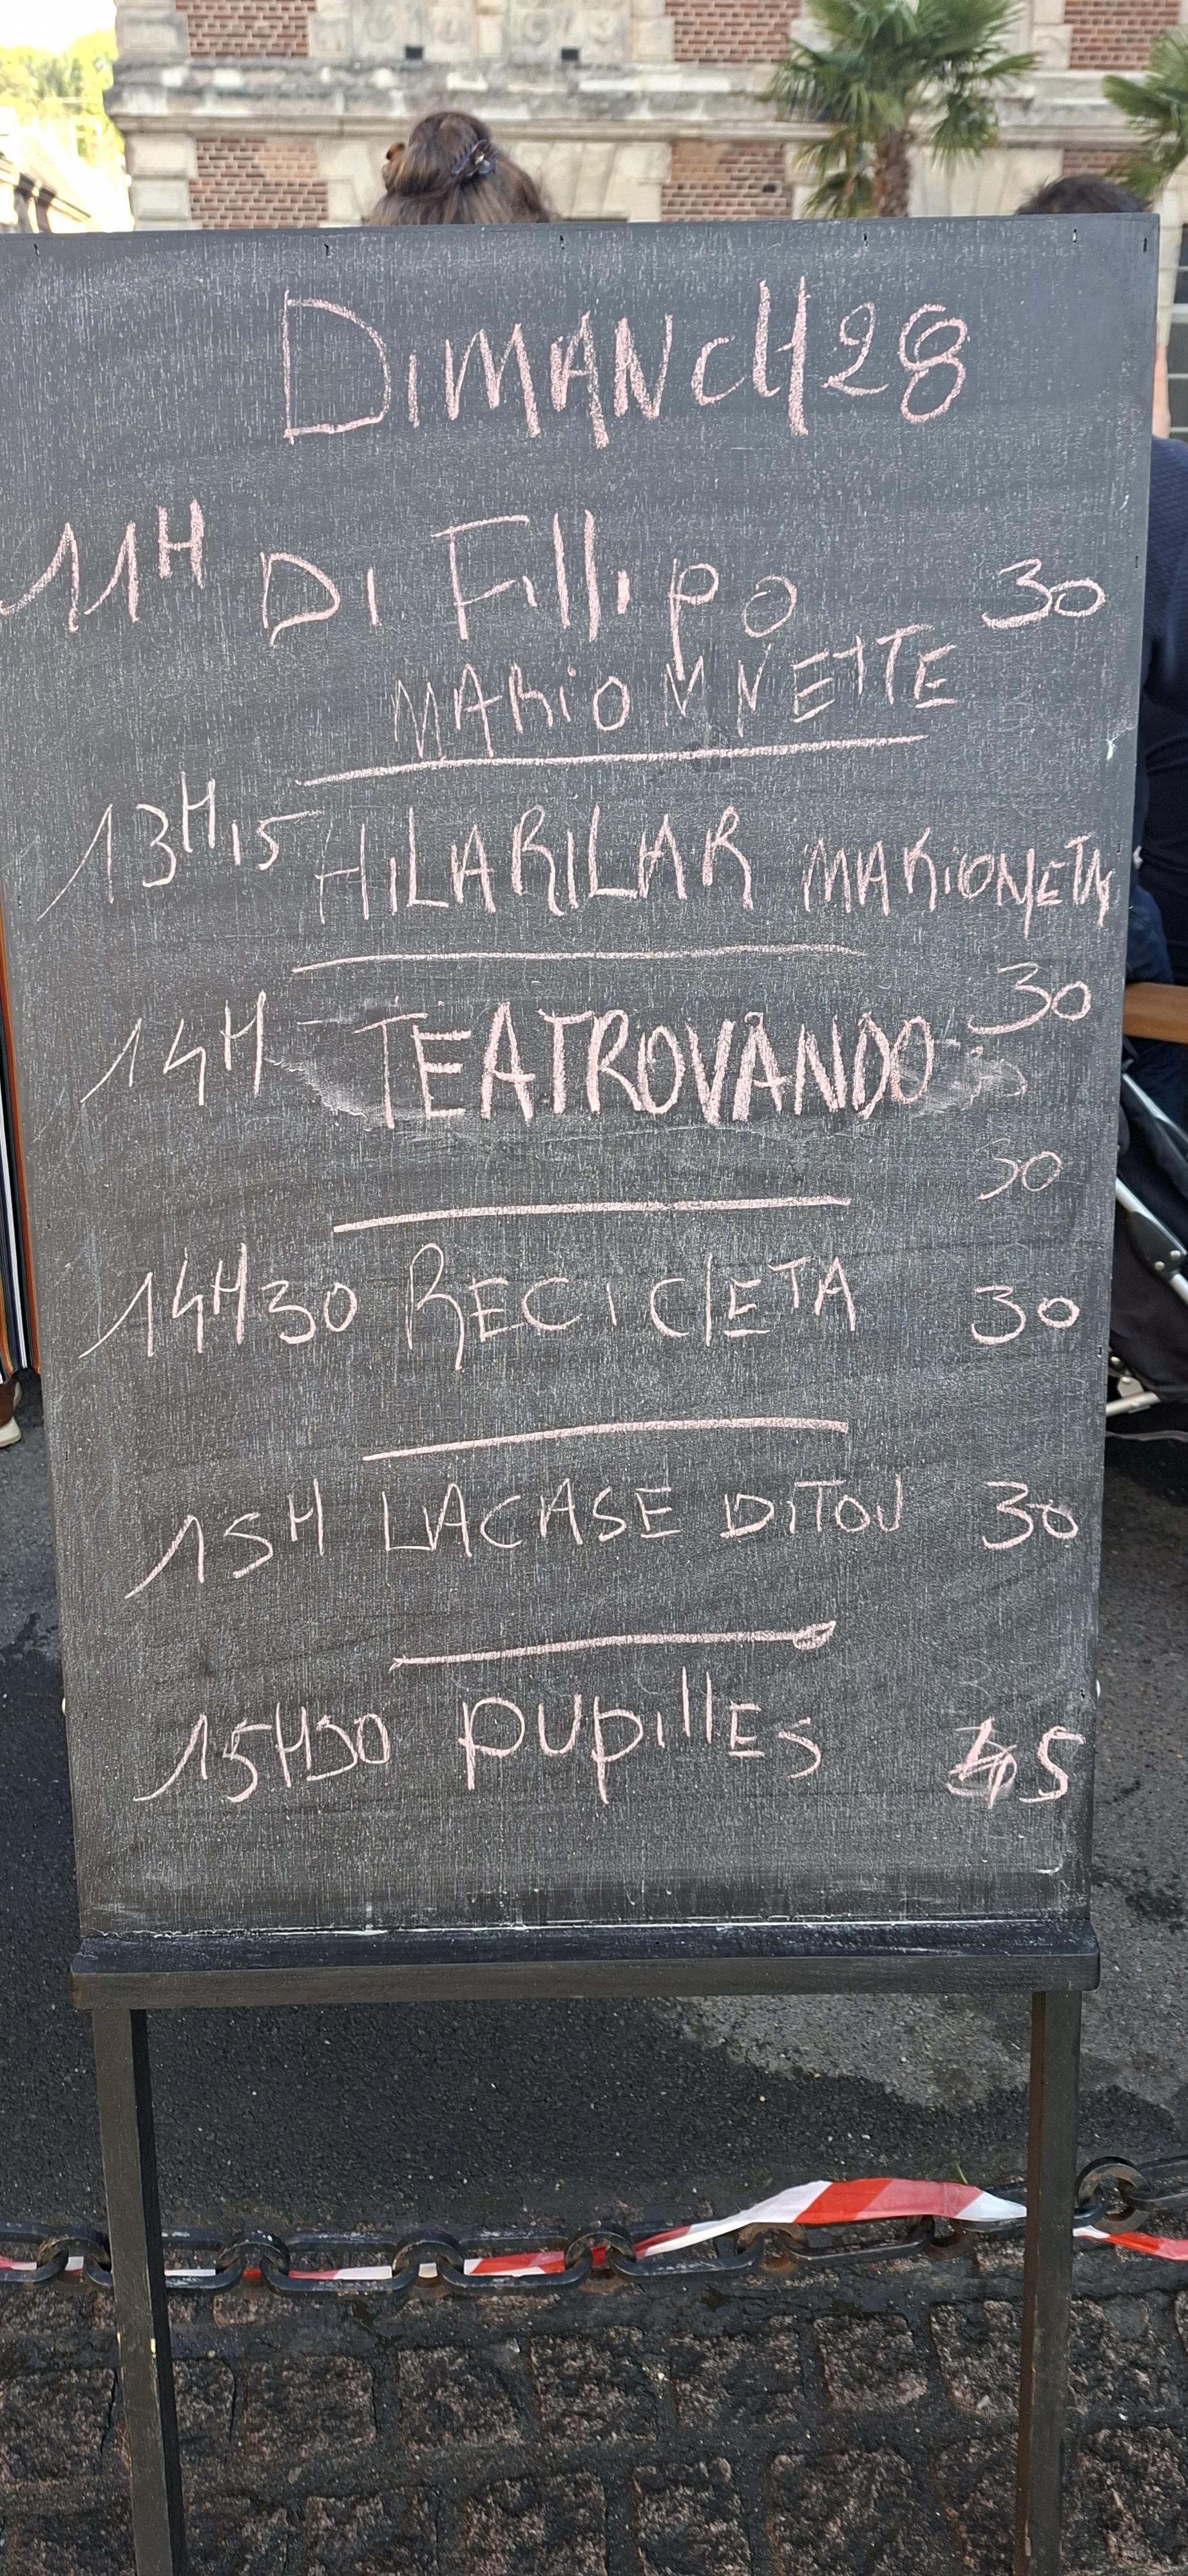 DIMANCH 28
11H DI FillIPO 30
MARIONNETTE
13H15 HILARILAR MARIONETA
30
14H TEATROVANDO
30
14H30 RECICLETA 30
15H LACASE DITOU 30
15H30 PUPILLES 45